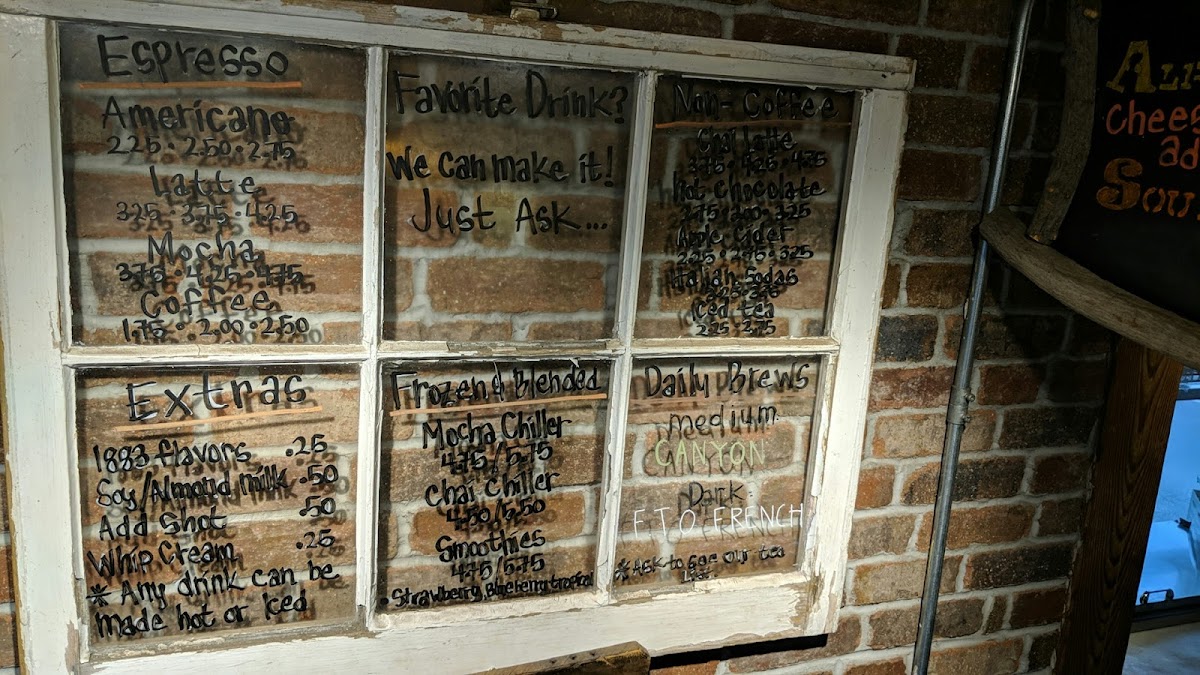 Espresso
Americano
2.25 • 2.50 • 2.75
Latte
3.25 • 3.75 • 4.25
Mocha
3.75 • 4.25 • 4.75
Coffee
1.75 • 2.00 • 2.50
Favorite Drink?
We can make it!
Just Ask...
Non-Coffee
Chai Latte
3.75 • 4.25 • 4.75
Hot Chocolate
Apple Cider
2.25 • 2.75 • 3.25
Italian Sodas
Iced tea
2.25 • 2.75
Extras
1883 flavors .25
Soy/Almond milk .50
Add shot .50
Whip Cream .25
* Any drink can be
made hot or iced
Frozen & Blended
Mocha Chiller
4.75/5.75
Chai Chiller
4.50/5.50
Smoothies
4.75/5.75
• Strawberry, Blueberry, tropical
Daily Brews
medium
CANYON
Dark
FTO FRENCH
* Ask to see our tea
list.
Chee
ad
Sou